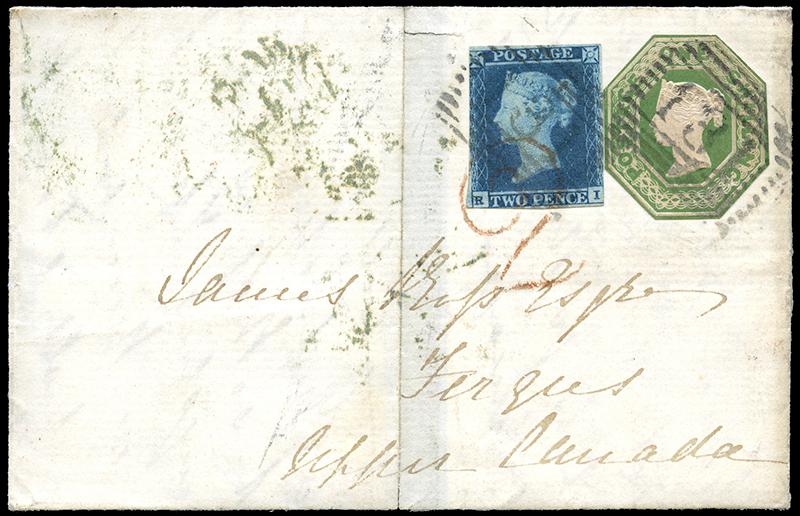 POSTAGE
TWO PENCE
R I
James Ross Esqre
Fergus
Upper Canada